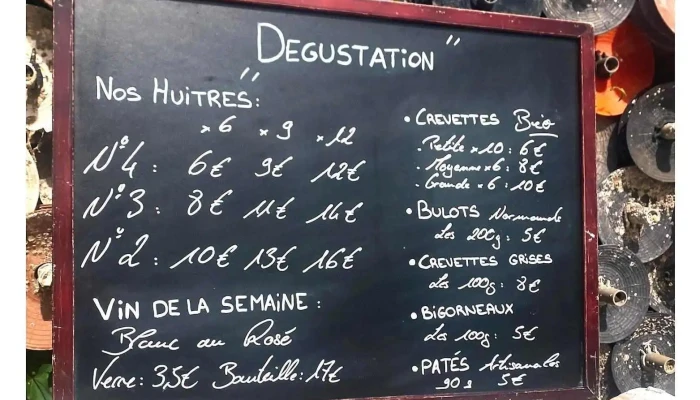 "DEGUSTATION"
NOS HUITRES:
x6 x9 x12
N°4: 6€ 9€ 12€
N°3: 8€ 11€ 14€
N°2: 10€ 13€ 16€
VIN DE LA SEMAINE:
Blanc ou Rosé
Verre: 3,5€ Bouteille: 17€
• CREVETTES Bio
. Petite x10: 6€
. Moyenne x6: 8€
. Grande x6: 10€
• BULOTS Normands
Les 200g: 5€
• CREVETTES GRISES
Les 100g: 8€
• BIGORNEAUX
Les 100g: 5€
• PATÉS Artisanales
90g 5€